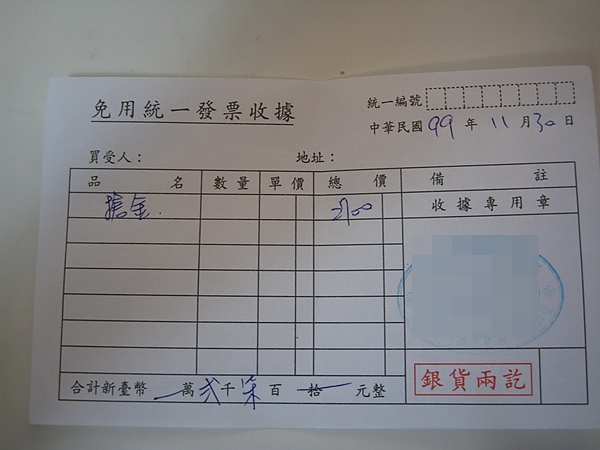 免用統一發票收據
統一編號
中華民國 99 年 11 月 30 日
買受人： 地址：
品名 數量 單價 總價 備註
金. 2700 收據專用章
銀貨兩訖
合計新臺幣 萬 弍 千 柒 百 拾 元整